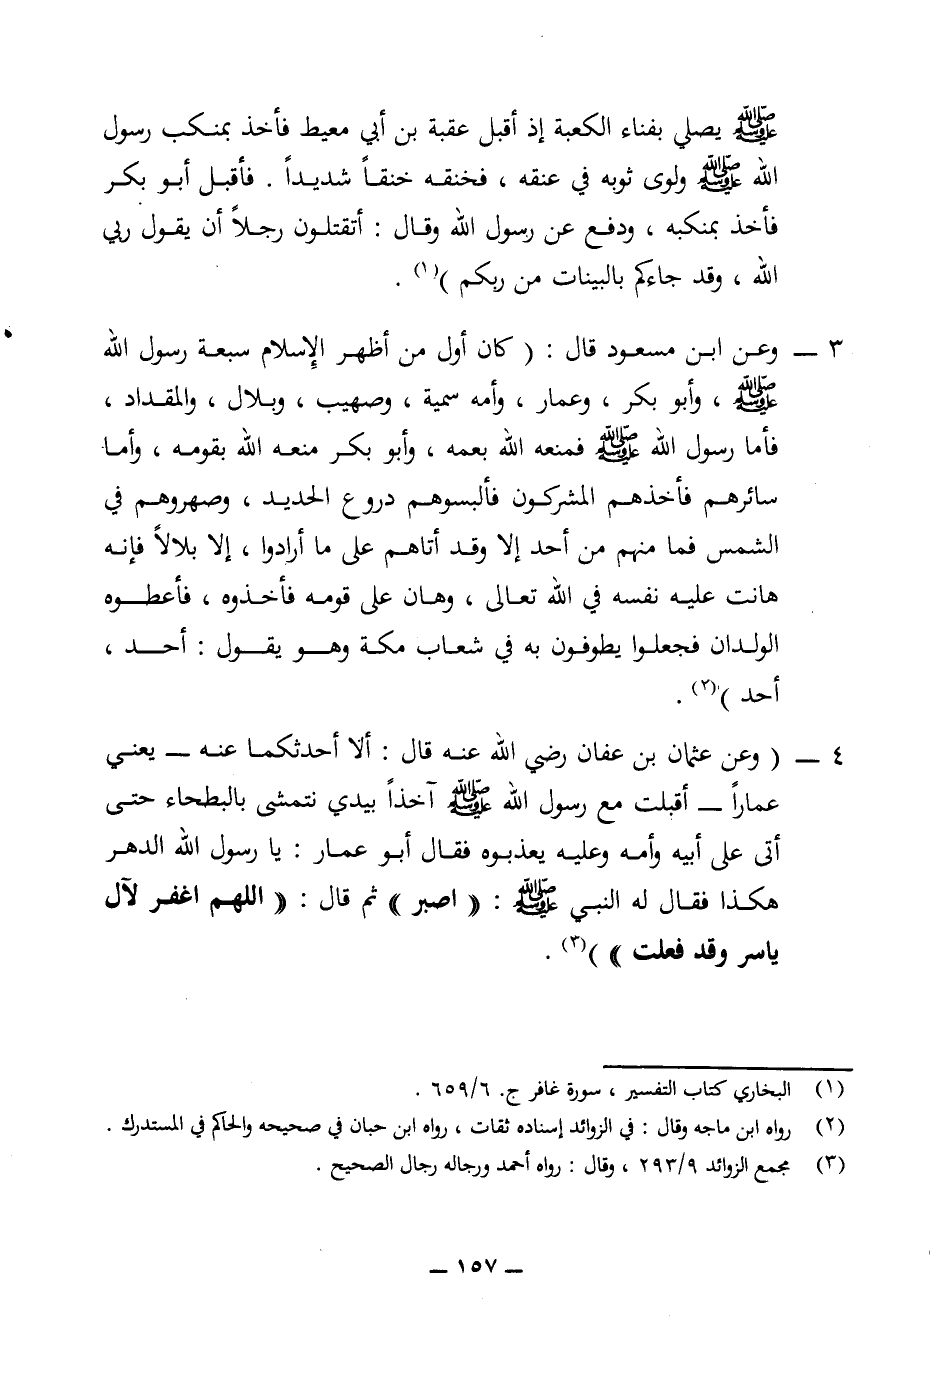 ﷺ يصلي بفناء الكعبة إذ أقبل عقبة بن أبي معيط فأخذ بمنكب رسول
الله ﷺ ولوى ثوبه في عنقه ، فخنقه خنقاً شديداً . فأقبل أبو بكر
فأخذ بمنكبه ، ودفع عن رسول الله وقال : أتقتلون رجلاً أن يقول ربي
الله ، وقد جاءكم بالبينات من ربكم )(١) .
٣ ــ وعن ابن مسعود قال : ( كان أول من أظهر الإسلام سبعة رسول الله
ﷺ ، وأبو بكر ، وعمار ، وأمه سمية ، وصهيب ، وبلال ، والمقداد ،
فأما رسول الله ﷺ فمنعه الله بعمه ، وأبو بكر منعه الله بقومه ، وأما
سائرهم فأخذهم المشركون فألبسوهم دروع الحديد ، وصهروهم في
الشمس فما منهم من أحد إلا وقد أتاهم على ما أرادوا ، إلا بلالاً فإنه
هانت عليه نفسه في الله تعالى ، وهان على قومه فأخذوه ، فأعطوه
الولدان فجعلوا يطوفون به في شعاب مكة وهو يقول : أحد ،
أحد )(٢) .
٤ ــ ( وعن عثمان بن عفان رضي الله عنه قال : ألا أحدثكما عنه ــ يعني
عماراً ــ أقبلت مع رسول الله ﷺ آخذاً بيدي نتمشى بالبطحاء حتى
أتى على أبيه وأمه وعليه يعذبوه فقال أبو عمار : يا رسول الله الدهر
هكذا فقال له النبي ﷺ : « اصبر » ثم قال : « اللهم اغفر لآل
ياسر وقد فعلت » )(٣) .
(١) البخاري كتاب التفسير ، سورة غافر ج. ٦٥٩/٦ .
(٢) رواه ابن ماجه وقال : في الزوائد إسناده ثقات ، رواه ابن حبان في صحيحه والحاكم في المستدرك .
(٣) مجمع الزوائد ٢٩٣/٩ ، وقال : رواه أحمد ورجاله رجال الصحيح .
ــ ١٥٧ ــ